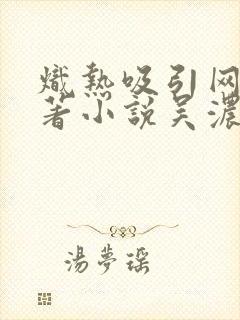 熾熱吸引网
著小說吴濃
湯夢瑶